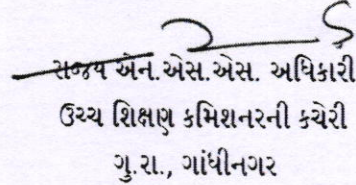 રાજ્ય એન.એસ.એસ. અધિકારી
ઉચ્ચ શિક્ષણ કમિશનરની કચેરી
ગુ.રા., ગાંધીનગર